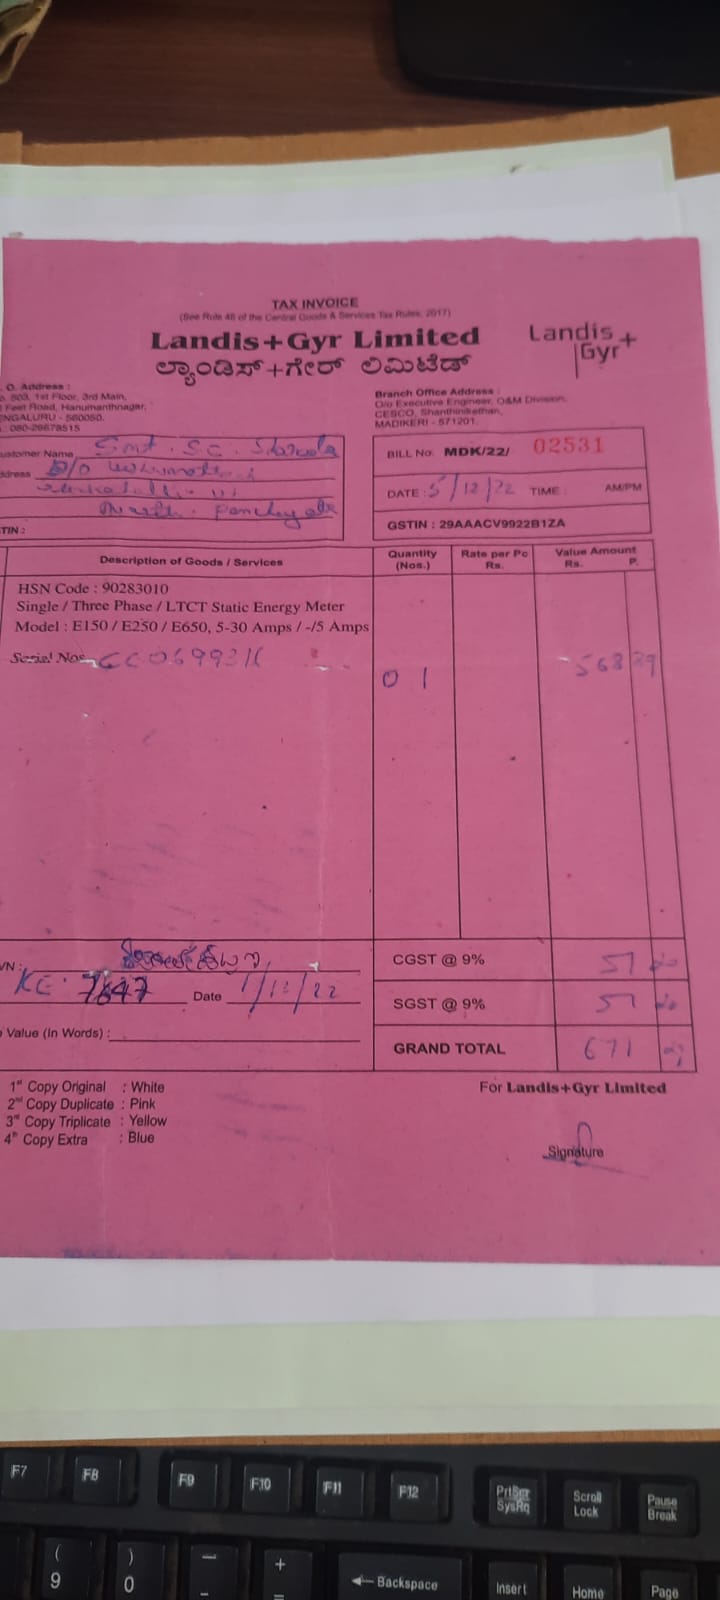 TAX INVOICE
(See Rule 46 of the Central Goods & Services Tax Rules, 2017)
Landis+Gyr Limited
ಲ್ಯಾಂಡಿಸ್+ಗೇರ್ ಲಿಮಿಟೆಡ್
Landis+
Gyr
O. Address :
503, 1st Floor, 3rd Main,
Feet Road, Hanumanthnagar,
ENGALURU - 560050.
: 080-26679515
Branch Office Address :
O/o Executive Engineer, O&M Division,
CESCO, Shanthinikethan,
MADIKERI - 571201.
ustomer Name Smt. S.C.
ddress
TIN :
BILL No. MDK/22/ 02531
DATE : 5/12/22 TIME : AM/PM
GSTIN : 29AAACV9922B1ZA
Description of Goods / Services
Quantity (Nos.)
Rate per Pc Rs.
Value Amount Rs. P.
HSN Code : 90283010
Single / Three Phase / LTCT Static Energy Meter
Model : E150 / E250 / E650, 5-30 Amps / -/5 Amps
Serial Nos.
01
568
VN :
KE 7647 Date 1/12/22
Value (In Words) :
CGST @ 9% 51
SGST @ 9% 51
GRAND TOTAL 671
1st Copy Original : White
2nd Copy Duplicate : Pink
3rd Copy Triplicate : Yellow
4th Copy Extra : Blue
For Landis+Gyr Limited
Signature
F7 F8 F9 F10 F11 F12 PrtScr SysRq Scroll Lock Pause Break
( 9 ) 0 — - + = Backspace Insert Home Page